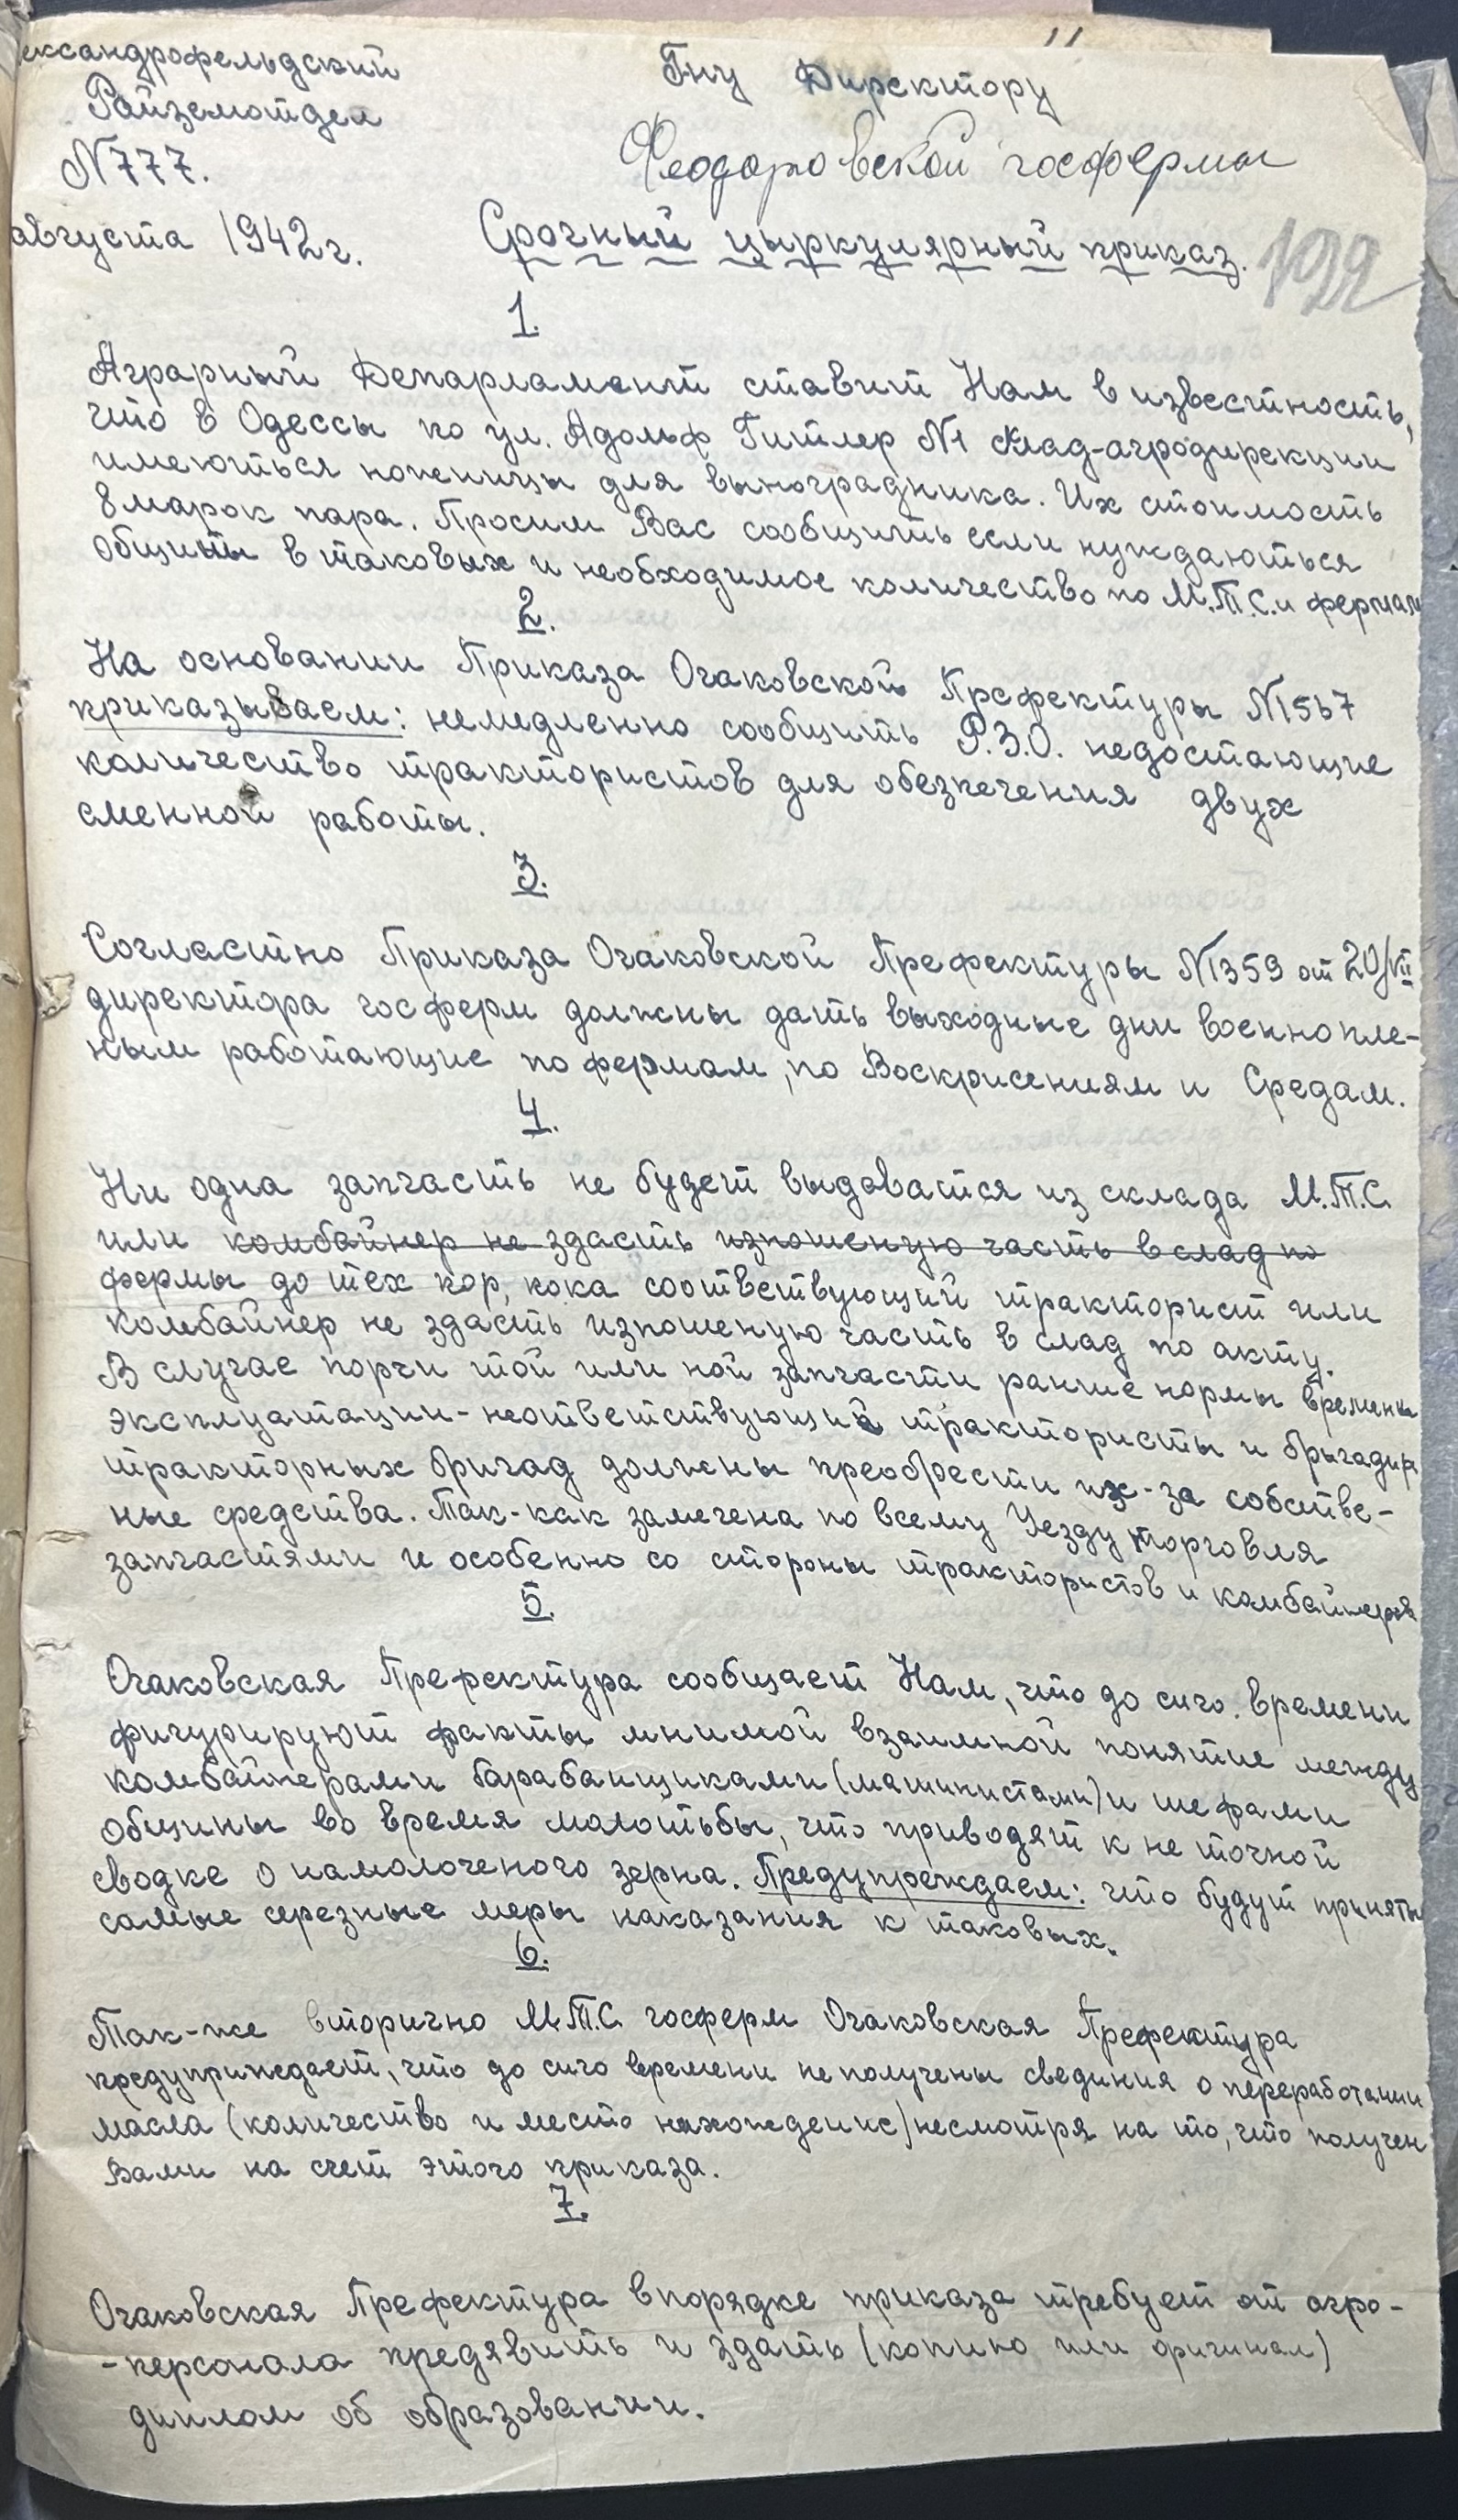 ександрофельдский
Райземотдел
N777.
августа 1942г.
Гну Директору
Феодоровской госфермы
Срочный цыркулярный приказ.
192
1.
Аграрный Департамент ставит Нам в известность,
что в Одессы по ул. Адольф Гитлер N1 склад-агродирекции
имеються ноженицы для выноградника. Их стоимость
8 марок пара. Просим Вас сообщить если нуждаються
общины в таковых и необходимое количество по М.Т.С. и фермам
2.
На основании Приказа Очаковской Префектуры N1567
приказываем: немедленно сообщить Р.З.О. недостающие
количество трактористов для обезпечения двух
сменной работы.
3.
Согластно Приказа Очаковской Префектуры N1359 от 20/VII
директора госферм должны дать выходные дни военнопле-
ным работающие по фермам, по Воскрисениям и Средам.
4.
Ни одна запчасть не будет выдаватся из склада М.Т.С.
или комбайнер не здасть изношеную часть в слад по
фермы до тех пор, пока соотвествующий тракторист или
комбайнер не здасть изношеную часть в слад по акту.
В случае порчи той или ной запчасти ранше нормы времени
эксплуатации - неответствующий трактористы и брыгадиры
тракторных бригад должены преобрести их-за собстве-
ные средства. Так-как замечена по всему Уезду торговля
запчастями и особенно со стороны трактористов и комбайнеров
5.
Очаковская Префектура сообщает Нам, что до сиго. времени
фигурируют факты мнимой взаимной понятие между
комбайнерами барабанщиками (машинистами) и шефами
общины во время молотьбы, что приводят к не точной
сводке о намолоченого зерна. Предупреждаем: что будут приняты
самые серезные меры наказания к таковых.
6.
Так-же вторично М.Т.С. госферм Очаковская Префектура
предуприждает, что до сиго времени не получены свединия о переработании
масла (количество и место нахождение) несмотря на то, что получен
Вами на счет этого приказа.
7.
Очаковская Префектура впорядке приказа требует от агро-
-персонала предявить и здать (копию или оригинал)
диплом об образовании.